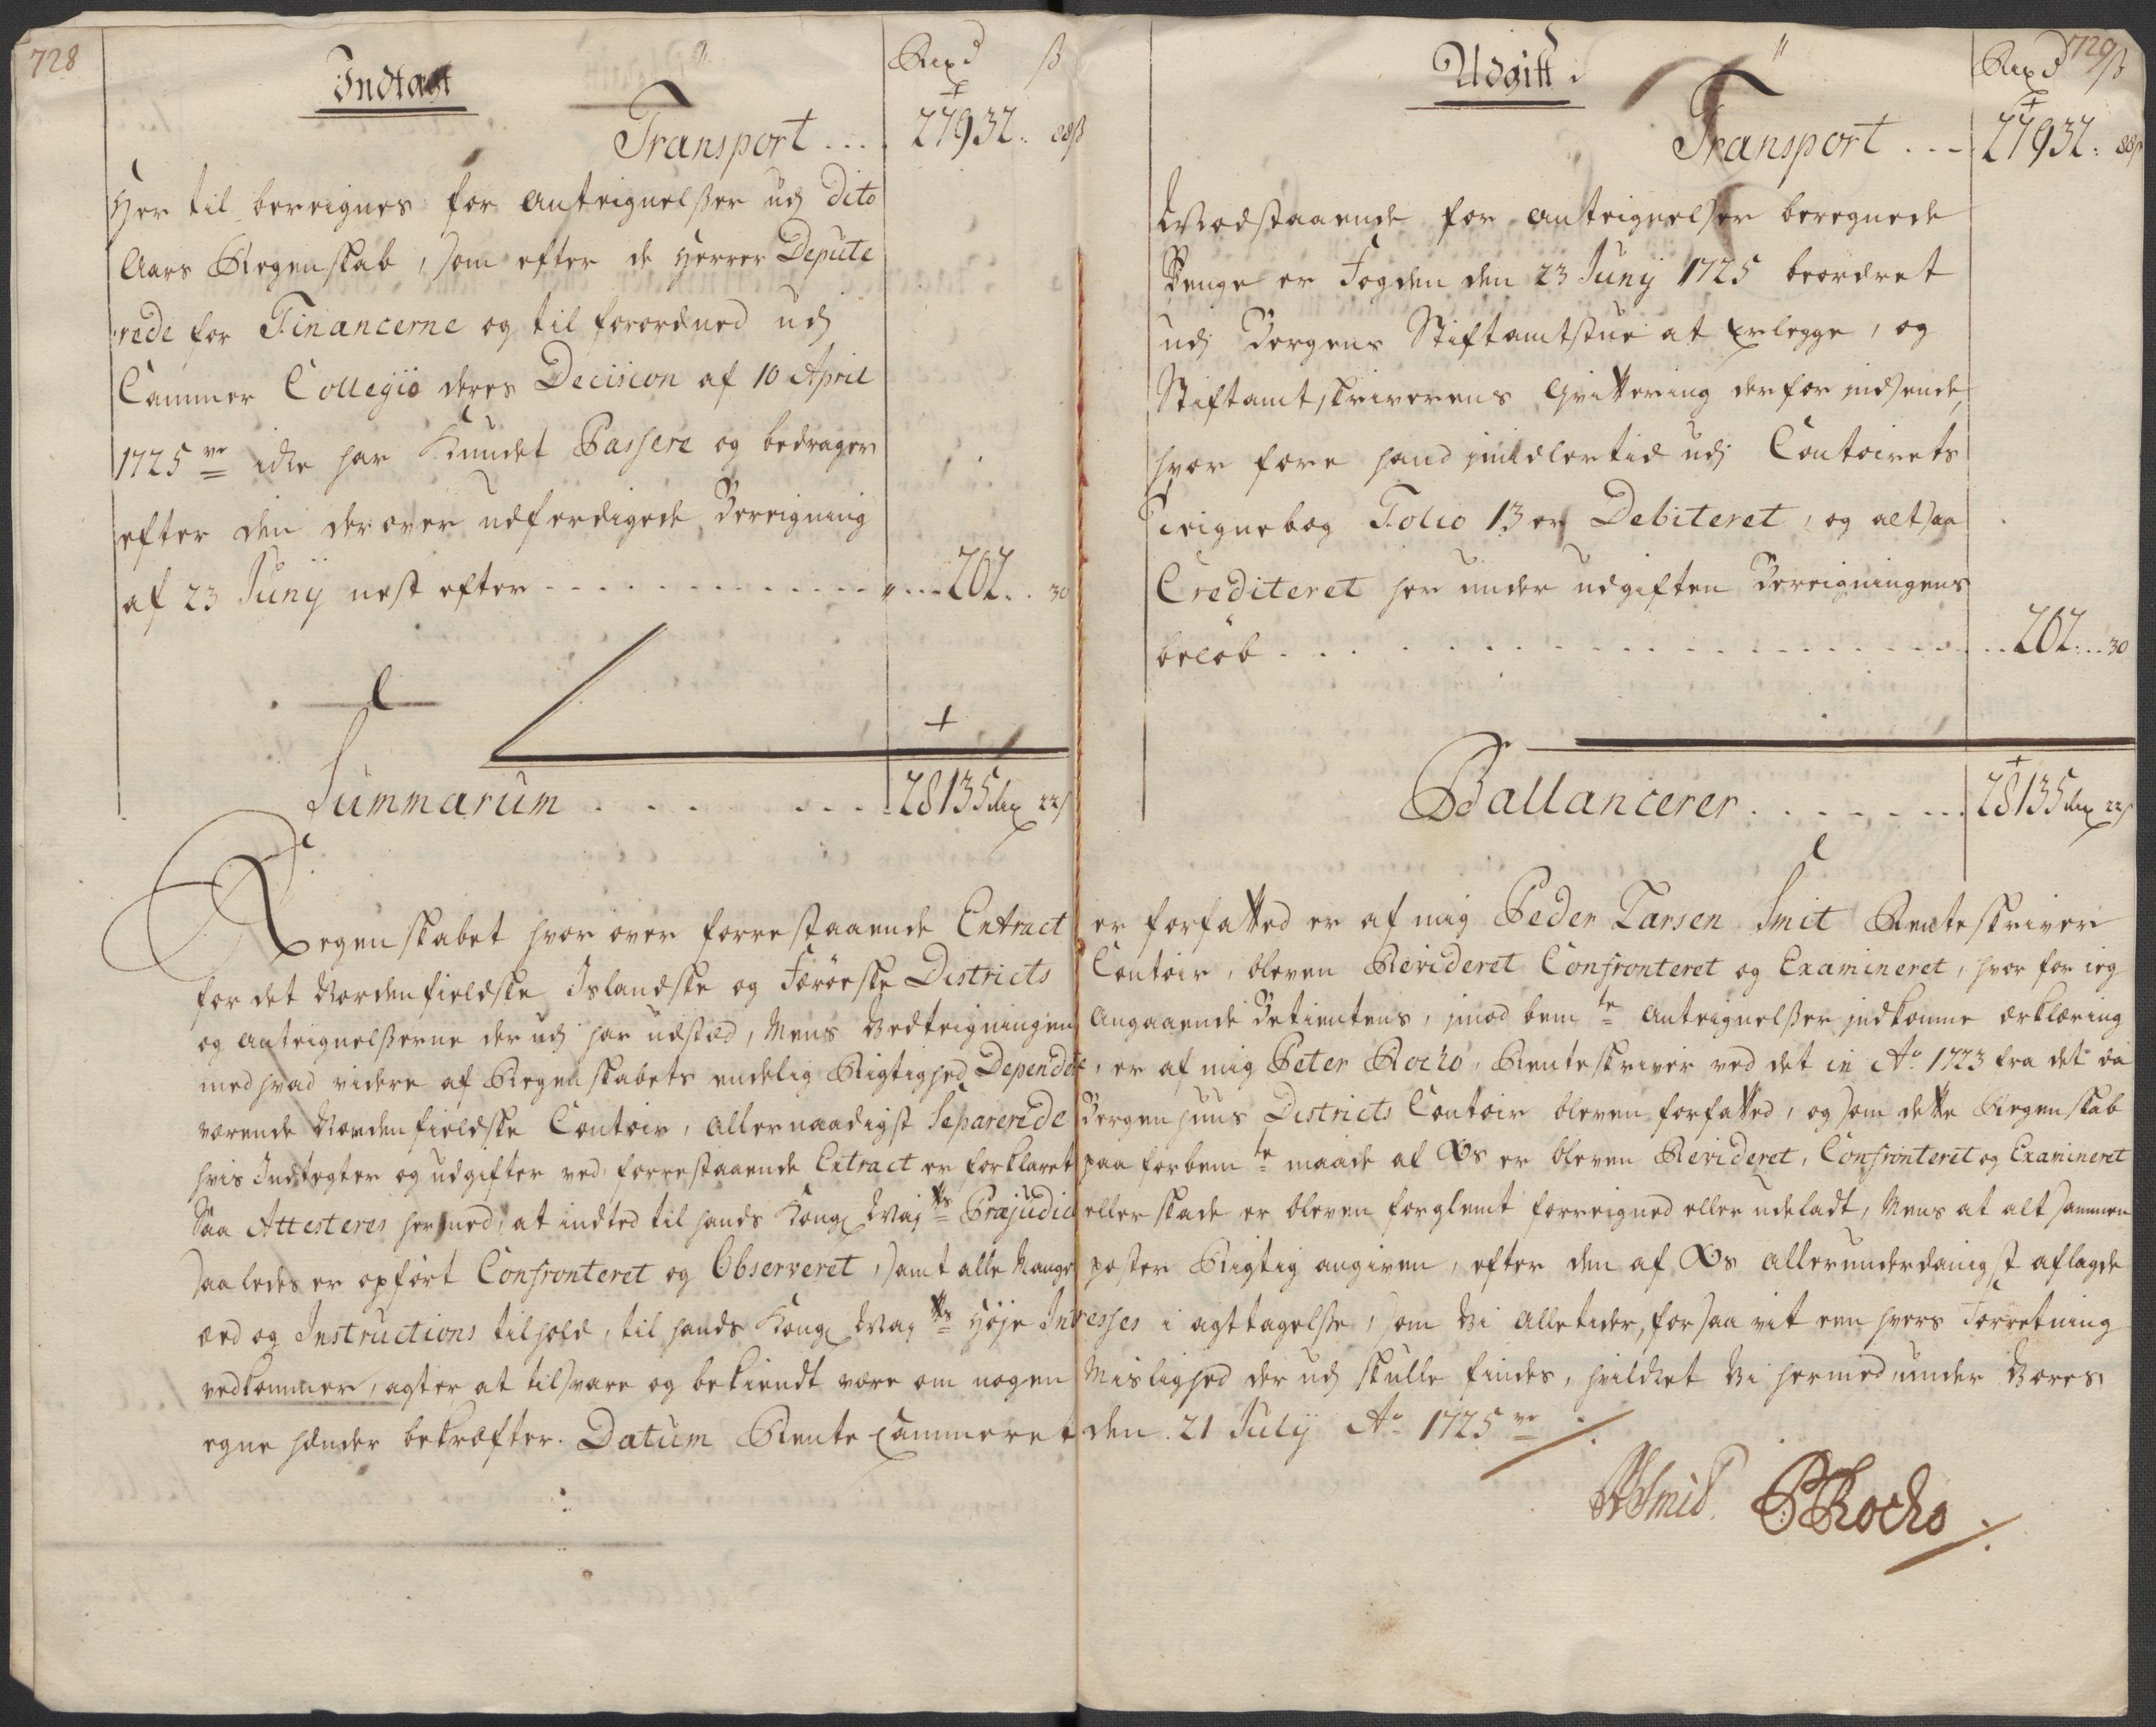 728
Indtægt
Rixd ß
Transport . . . 27932: 88ß
Her til bereignes for anteignelßer udj dito
Aars Regenskab, som efter de Herrer Depute
rede for Financerne og tilforordned udj
Cammer Collegio deres Decision af 10 April
1725 ve icke har Kundet Passere og bedrager
efter den derover udferdigede Bereigning
af 23 Junij nest efter . . . . . . 202. . 30
Summarum . . . . . . . 28135 rix 22ß
Udgift
729
Rixd ß
Transport . . . 27932: 88ß
Modstaaende for anteignelser beregnede
Penge er Fogden den 23 Junij 1725 beordret
udj Bergens Stiftamtstue at erlegge, og
Stiftamtskriverens Qvittering derfor indsende,
hvor fore hand imidlertid udj Contoirets
Teignebog Folio 13 er Debiteret, og altsaa
Crediteret her under udgiften Bereigningens
beløb . . . . . . 202. . . 30
Ballancerer . . . . . . . 28135 rix 22ß
Regenskabet hvor over forrestaaende Extract er forfatted er af mig Peder Larsen Smit Renteskriver
for det Nordenfieldske Islandske og Færøeske Districts Contoir, bleven Revideret Confronteret og Examineret, hvor for ieg
og anteignelßerne der udj har udsted, Mens Vedteigningen angaaende Betientens, imod bem te anteignelßer indkomne erklæring
med hvad videre af Regenskabets endelig Rigtighed Dependerer, er af mig Peter Rocho, Renteskriver ved det in Ao 1723 fra det da
værende Nordenfieldske Contoir, allernaadigst Separerede Bergenhuus Districts Contoir bleven forfatted, og som dette Regenskab
hvis Indtegter og udgifter ved forrestaaende Extract er forklaret paa forbem te maade af Os er bleven Revideret, Confronteret og Examineret
Saa Attesteres hermed, at indted til hands Kongl May ts Præjudice eller skade er bleven forglemt forreigned eller udeladt, Mens at alt sammen
saaledes er opført Confronteret og Observeret, samt alle Mangel poster Rigtig angiven, efter den af Os allerunderdanigst aflagde
eed og Instructions tilhold, til hands Kongl May ts Høje Intresses i agttagelse, som Vi alletider, for saa vit een hvers Forretning
vedkommer, agter at tilsvare og bekiendt være om nogen Mislighed der udj skulle findes, hvilcket Vi hermed under Vores
egne hænder bekræfter. Datum Rente Cammeret den 21 Julij Ao 1725 ve
PLSmid. PRocho